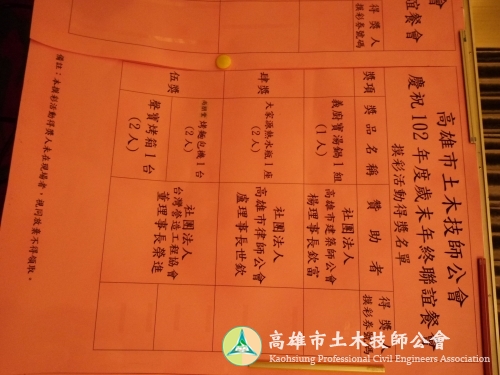 誼餐會
得獎人
摸彩券號碼
高雄市土木技師公會
慶祝102年度歲末年終聯誼餐會
摸彩活動得獎名單
獎項
獎品名稱
贊助者
得獎人
摸彩券號碼
義廚寶湯鍋1組
(1人)
社團法人
高雄市建築師公會
楊理事長欽富
肆獎
大家源熱水瓶1座
(2人)
社團法人
高雄市律師公會
盧理事長世欽
伍獎
烤麵包機1台
(2人)
聲寶烤箱1台
(2人)
社團法人
台灣營造工程協會
董理事長榮進
備註:本摸彩活動得獎人未在現場者,視同放棄不得領取。
高雄市土木技師公會
Kaohsiung Professional Civil Engineers Association